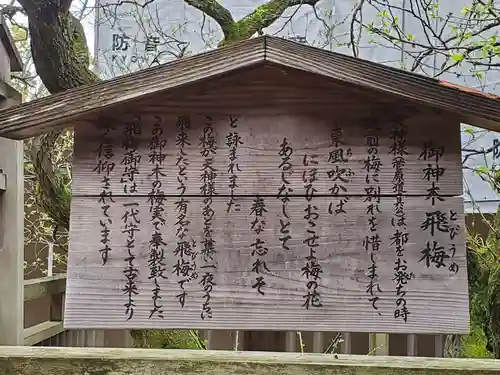 防音
御神木 飛梅
とびうめ
天神様(菅原道真公)は都をお発ちの時
この紅梅に別れを惜しまれて、
東風吹かば
こち
にほひおこせよ梅の花
あるじなしとて
春な忘れそ
と詠まれました
この梅が天神様のあとを慕い一夜のうちに
飛来したという有名な飛梅です
とびうめ
この御神木の梅の実で奉製致しました
「飛梅御守」は一代守として古来より
信仰されています